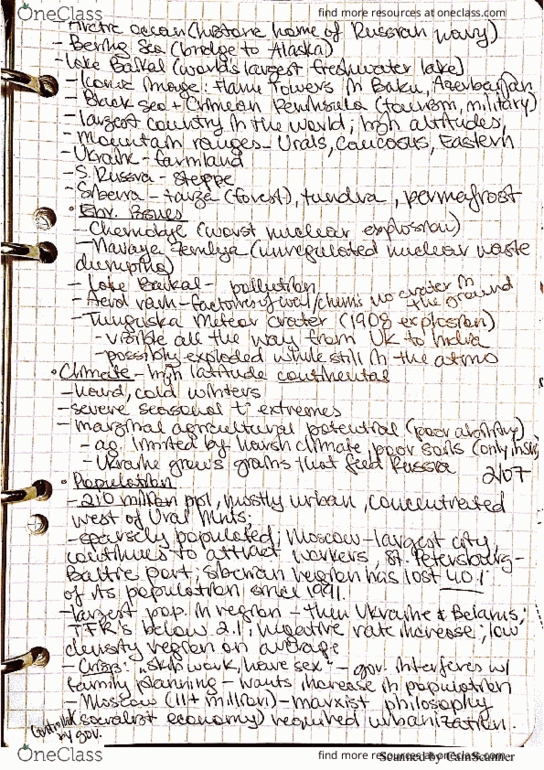 OneClass
find more resources at oneclass.com
- Arctic ocean (historic home of Russian navy)
- Bering Sea (bridge to Alaska)
- Lake Baikal (world's largest freshwater lake)
- Iconic Image: Flame Towers in Baku, Azerbaijan
- Black sea + Crimean Peninsula (tourism, military)
- largest country in the world; high altitudes,
- mountain ranges - Urals, Caucasus, Eastern
- Ukraine - farmland
- S. Russia - steppe
- Siberia - taiga (forest), tundra, permafrost
• Env. Issues
- Chernobyl (worst nuclear explosion)
- Navaya Zemlya (unregulated nuclear waste
dumping)
- Lake Baikal - pollution
- Acid rain - factories
- Tunguska Meteor Crater (1908 explosion)
no crater in
the ground
- visible all the way from UK to India
- possibly exploded while still in the atmo
• Climate - high latitude continental
- hard, cold winters
- severe seasonal t° extremes
- marginal agricultural potential (poor
- ag. limited by harsh climate, poor soils (only
- Ukraine grows grains that feed Russia
2/07
• Population
- 210 million ppl, mostly urban, concentrated
west of Ural Mnts;
- sparsely populated; Moscow - largest city
continues to attract workers, St. Petersburg -
Baltic port; Siberian region has lost 40%
of its population since 1991.
- largest pop. in region - then Ukraine & Belarus;
TFR's below 2.1; negative rate increase; low
density region on average
- Crisis: "skip work, have sex" - gov. interferes w/
family planning - wants increase in population
- Moscow (11+ million) - marxist philosophy
(socialist economy) required urbanization.
controlled
by gov.
OneClass
find more resources at oneclass.com
Scanned by CamScanner